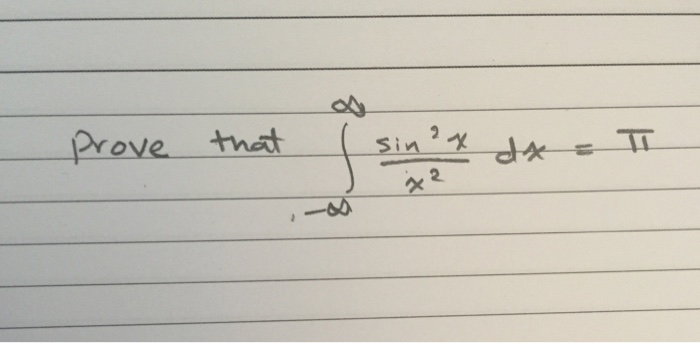 Prove that ∫_{-∞}^{∞} \frac{sin²x}{x²} dx = π